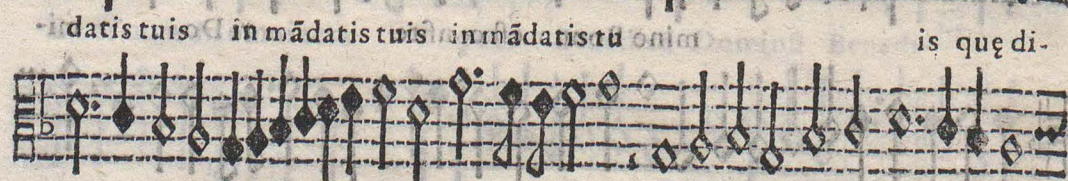 datis tuis in mādatis tuis in mādatis tu is quę di-